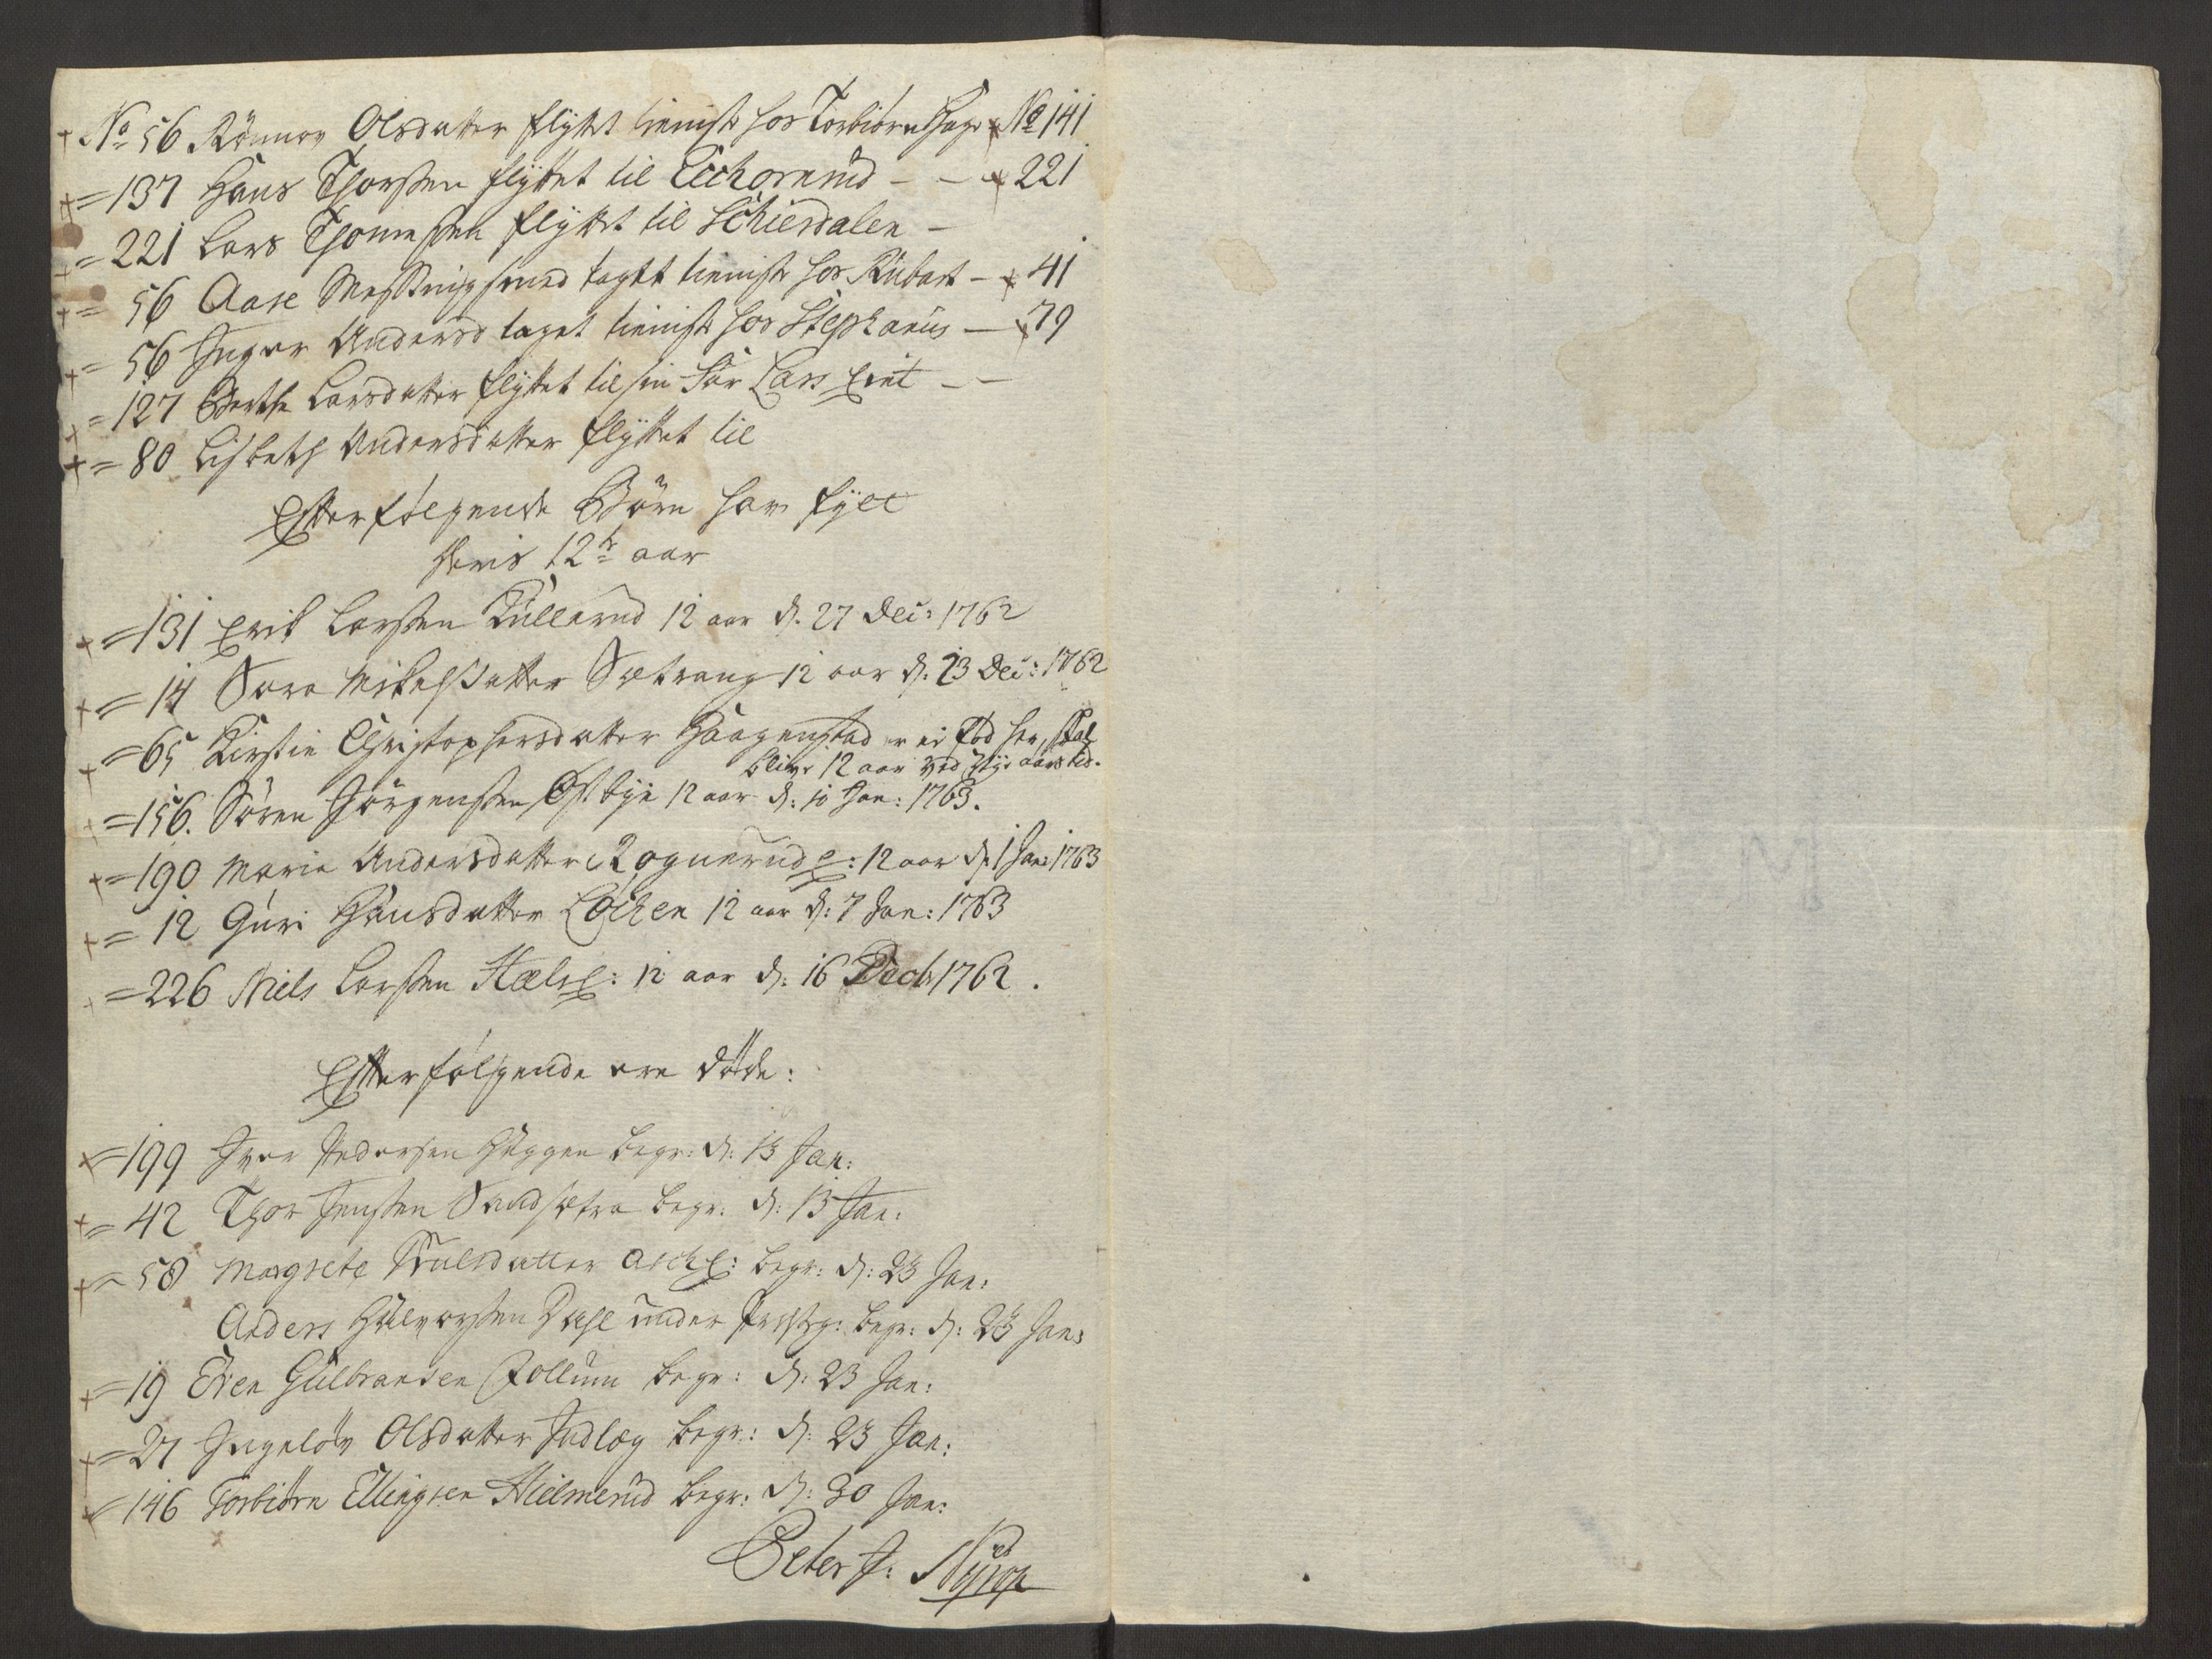 + No 56 Rönnov Olsdatter flyttet tienist hos Torbiörn Hage No 141
+ = 137 Hans Thorsen flyttet til Eichornrud - - 221
+ = 221 Lars Thomesen flyttet til Schiersdalen -
+ = 56 Aase taget tienist hos Rubert - 41
+ = 56 Inger Andersd taget tienist hos Stephanus - 79
+ = 127 Berthe Larsdatter flyttet til sin Far Lars Eint - -
+ = 80 Lisbeth Andersdatter flyttet til
Efterfølgende Börn har fylt
deris 12te aar
+ = 131 Erik Larsen Rullerud 12 aar d. 27 Dec: 1762
+ = 14 Sara Mikelsdatter Sætrang 12 aar d. 23 Dec: 1762
+ = 65 Kirstin Christophersdatter Haagenstad er ei fød her, skal
blive 12 aar ved Nyt aars tid.
+ = 156. Sören Jörgensen Østbye 12 aar d: 10 Jan: 1763.
+ = 190 Marie Andersdatter Rognerud E: 12 aar d. 1 Jan: 1763
+ = 12 Guri Hansdatter Löchen 12 aar d: 7 Jan: 1763
+ = 226 Niels Larsen Hæls E: 12 aar d: 16 Decb 1762.
Efterfølgende ere döde:
+ = 199 Iver Pedersen Huggen begr: d: 13 Jan:
+ = 42 Thor Jensen Sandsætra begr: d: 13 Jan:
+ = 58 Margrete Truelsdatter Ask E: begr: d: 23 Jan:
Anders Halvorsen Dahl under Præstg: begr: d: 23 Jan:
+ = 19 Even Gulbransen Follum begr: d: 23 Jan:
+ = 27 Ingelöv Olsdatter Indlæg begr: d: 23 Jan:
+ = 146 Torbiörn Ellingsen Hielmerud begr: d: 30 Jan:
Peter J: Nyrop